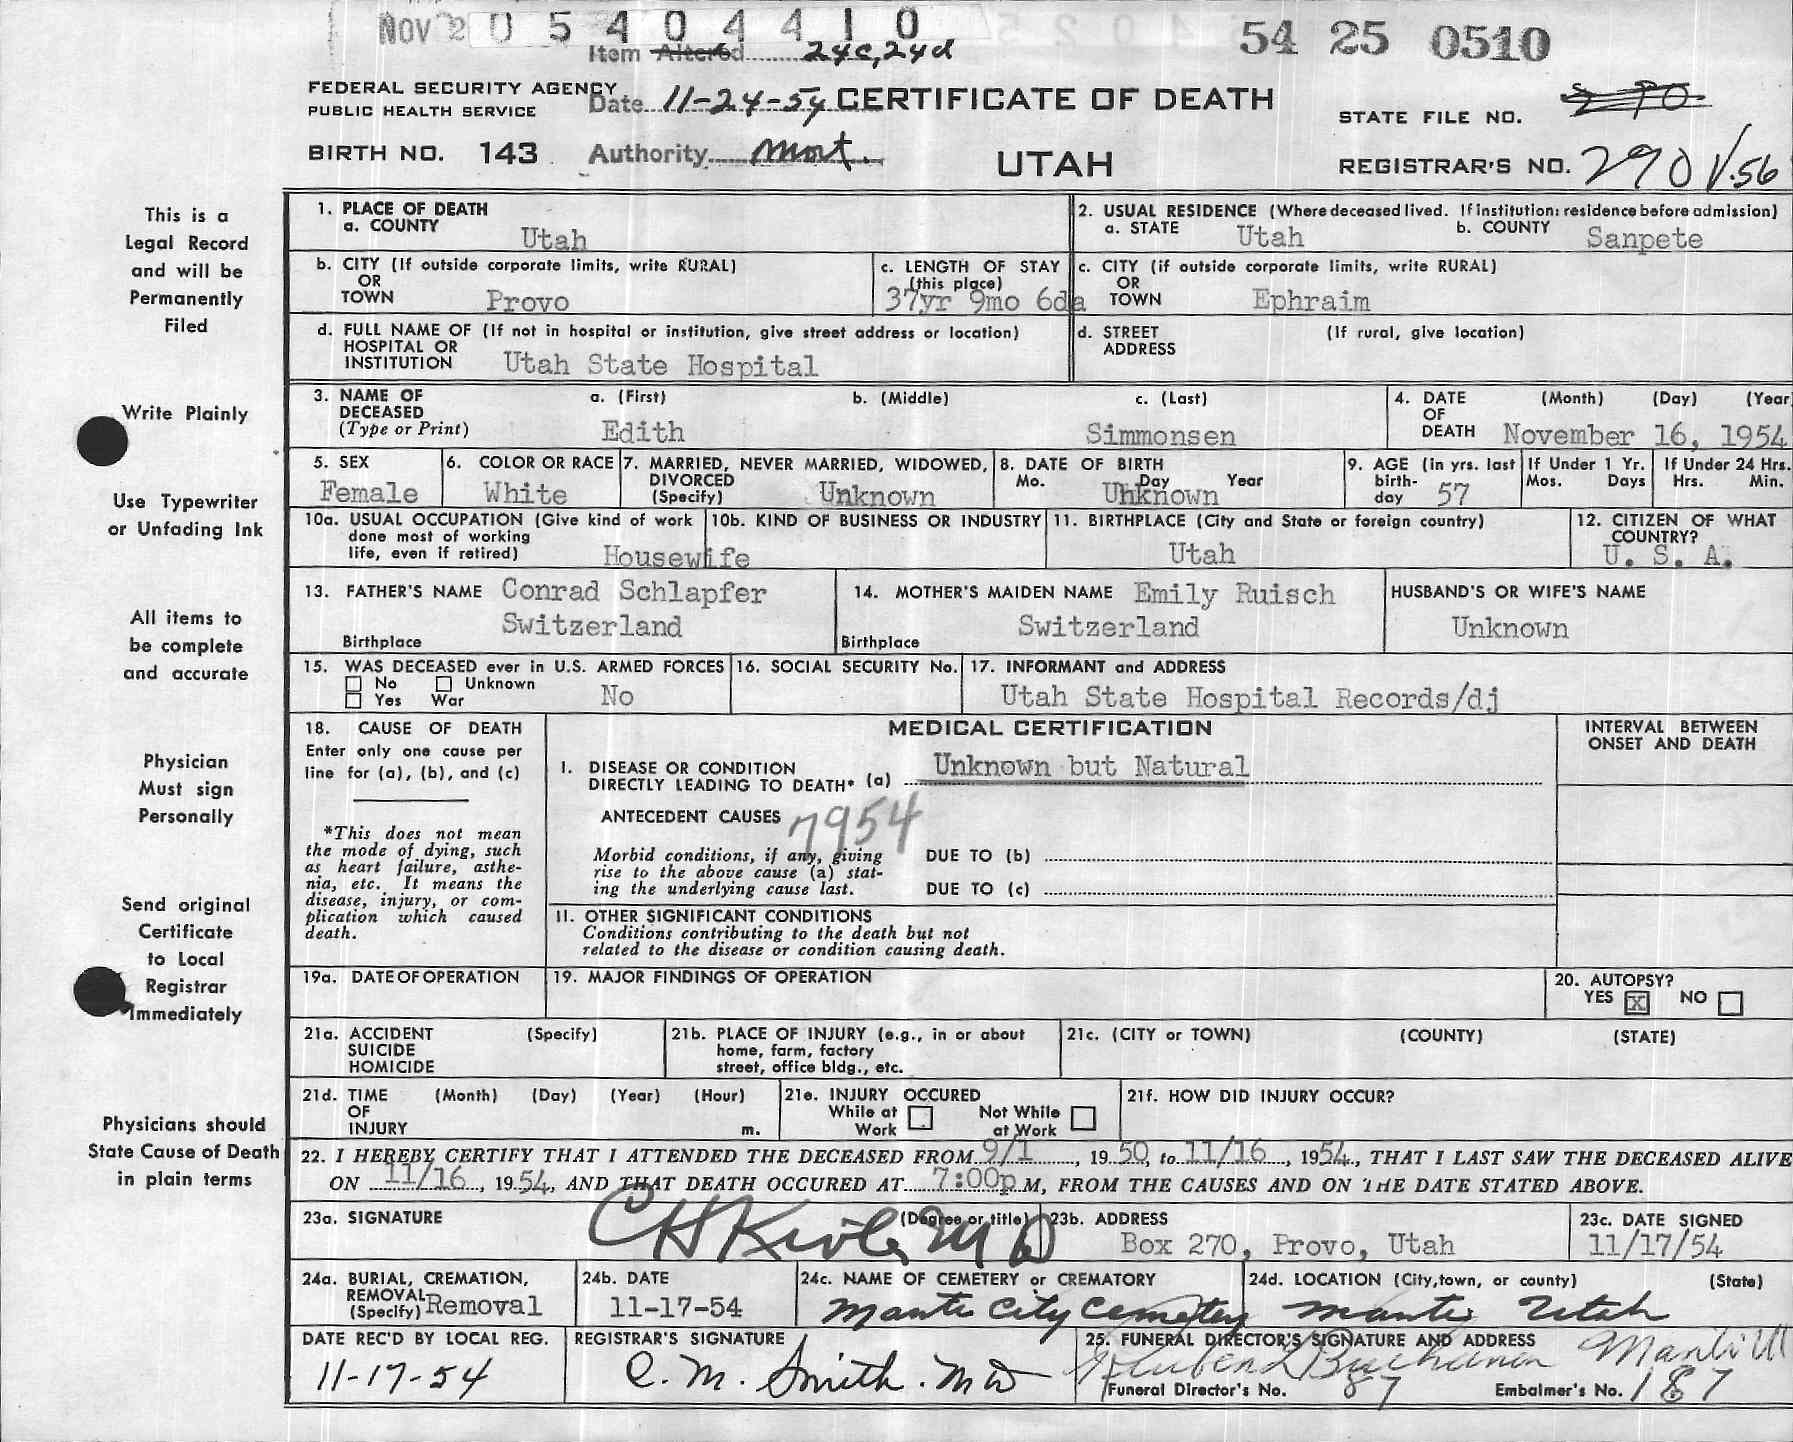 NOV 2 0 5 4 0 4 4 1 0
54 25 0510
Item Altered 24c, 24d
FEDERAL SECURITY AGENCY
PUBLIC HEALTH SERVICE
Date 11-24-54
CERTIFICATE OF DEATH
STATE FILE NO. 290
BIRTH NO. 143
Authority Mort.
UTAH
REGISTRAR'S NO. 290 V.56
This is a
Legal Record
and will be
Permanently
Filed
Write Plainly
Use Typewriter
or Unfading Ink
All items to
be complete
and accurate
Physician
Must sign
Personally
Send original
Certificate
to Local
Registrar
Immediately
Physicians should
State Cause of Death
in plain terms
1. PLACE OF DEATH
a. COUNTY Utah
2. USUAL RESIDENCE (Where deceased lived. If institution: residence before admission)
a. STATE Utah b. COUNTY Sanpete
b. CITY (If outside corporate limits, write RURAL)
OR
TOWN Provo
c. LENGTH OF STAY
(this place)
37yr 9mo 6da
c. CITY (if outside corporate limits, write RURAL)
OR
TOWN Ephraim
d. FULL NAME OF (If not in hospital or institution, give street address or location)
HOSPITAL OR
INSTITUTION Utah State Hospital
d. STREET (If rural, give location)
ADDRESS
3. NAME OF a. (First) b. (Middle) c. (Last)
DECEASED
(Type or Print) Edith Simmonsen
4. DATE (Month) (Day) (Year
OF
DEATH November 16, 1954
5. SEX
Female
6. COLOR OR RACE
White
7. MARRIED, NEVER MARRIED, WIDOWED,
DIVORCED
(Specify) Unknown
8. DATE OF BIRTH
Mo. Day Year
Unknown
9. AGE (in yrs. last
birth-
day 57
If Under 1 Yr.
Mos. Days
If Under 24 Hrs.
Hrs. Min.
10a. USUAL OCCUPATION (Give kind of work
done most of working
life, even if retired) Housewife
10b. KIND OF BUSINESS OR INDUSTRY
11. BIRTHPLACE (City and State or foreign country)
Utah
12. CITIZEN OF WHAT
COUNTRY?
U. S. A.
13. FATHER'S NAME Conrad Schlapfer
Switzerland
Birthplace
14. MOTHER'S MAIDEN NAME Emily Ruisch
Switzerland
Birthplace
HUSBAND'S OR WIFE'S NAME
Unknown
15. WAS DECEASED ever in U.S. ARMED FORCES
No Unknown
Yes War No
16. SOCIAL SECURITY No.
17. INFORMANT and ADDRESS
Utah State Hospital Records/dj
18. CAUSE OF DEATH
Enter only one cause per
line for (a), (b), and (c)
*This does not mean
the mode of dying, such
as heart failure, asthe-
nia, etc. It means the
disease, injury, or com-
plication which caused
death.
MEDICAL CERTIFICATION
INTERVAL BETWEEN
ONSET AND DEATH
I. DISEASE OR CONDITION
DIRECTLY LEADING TO DEATH* (a) Unknown but Natural
ANTECEDENT CAUSES 7954
Morbid conditions, if any, giving
rise to the above cause (a) stat-
ing the underlying cause last.
DUE TO (b)
DUE TO (c)
II. OTHER SIGNIFICANT CONDITIONS
Conditions contributing to the death but not
related to the disease or condition causing death.
19a. DATE OF OPERATION
19. MAJOR FINDINGS OF OPERATION
20. AUTOPSY?
YES X NO
21a. ACCIDENT (Specify)
SUICIDE
HOMICIDE
21b. PLACE OF INJURY (e.g., in or about
home, farm, factory
street, office bldg., etc.
21c. (CITY or TOWN) (COUNTY) (STATE)
21d. TIME (Month) (Day) (Year) (Hour)
OF
INJURY m.
21e. INJURY OCCURED
While at Work
Not While at Work
21f. HOW DID INJURY OCCUR?
22. I HEREBY CERTIFY THAT I ATTENDED THE DECEASED FROM 9/1, 19 50, to 11/16, 1954, THAT I LAST SAW THE DECEASED ALIVE
ON 11/16, 19 54, AND THAT DEATH OCCURED AT 7:00p M, FROM THE CAUSES AND ON THE DATE STATED ABOVE.
23a. SIGNATURE (Degree or title)
M D
23b. ADDRESS
Box 270, Provo, Utah
23c. DATE SIGNED
11/17/54
24a. BURIAL, CREMATION,
REMOVAL
(Specify) Removal
24b. DATE
11-17-54
24c. NAME OF CEMETERY or CREMATORY
Manti City Cemetery
24d. LOCATION (City, town, or county) (State)
Manti Utah
DATE REC'D BY LOCAL REG.
11-17-54
REGISTRAR'S SIGNATURE
C. M. Smith. MD
25. FUNERAL DIRECTOR'S SIGNATURE AND ADDRESS
Buchanan Manti
Funeral Director's No. 87
Embalmer's No. 187